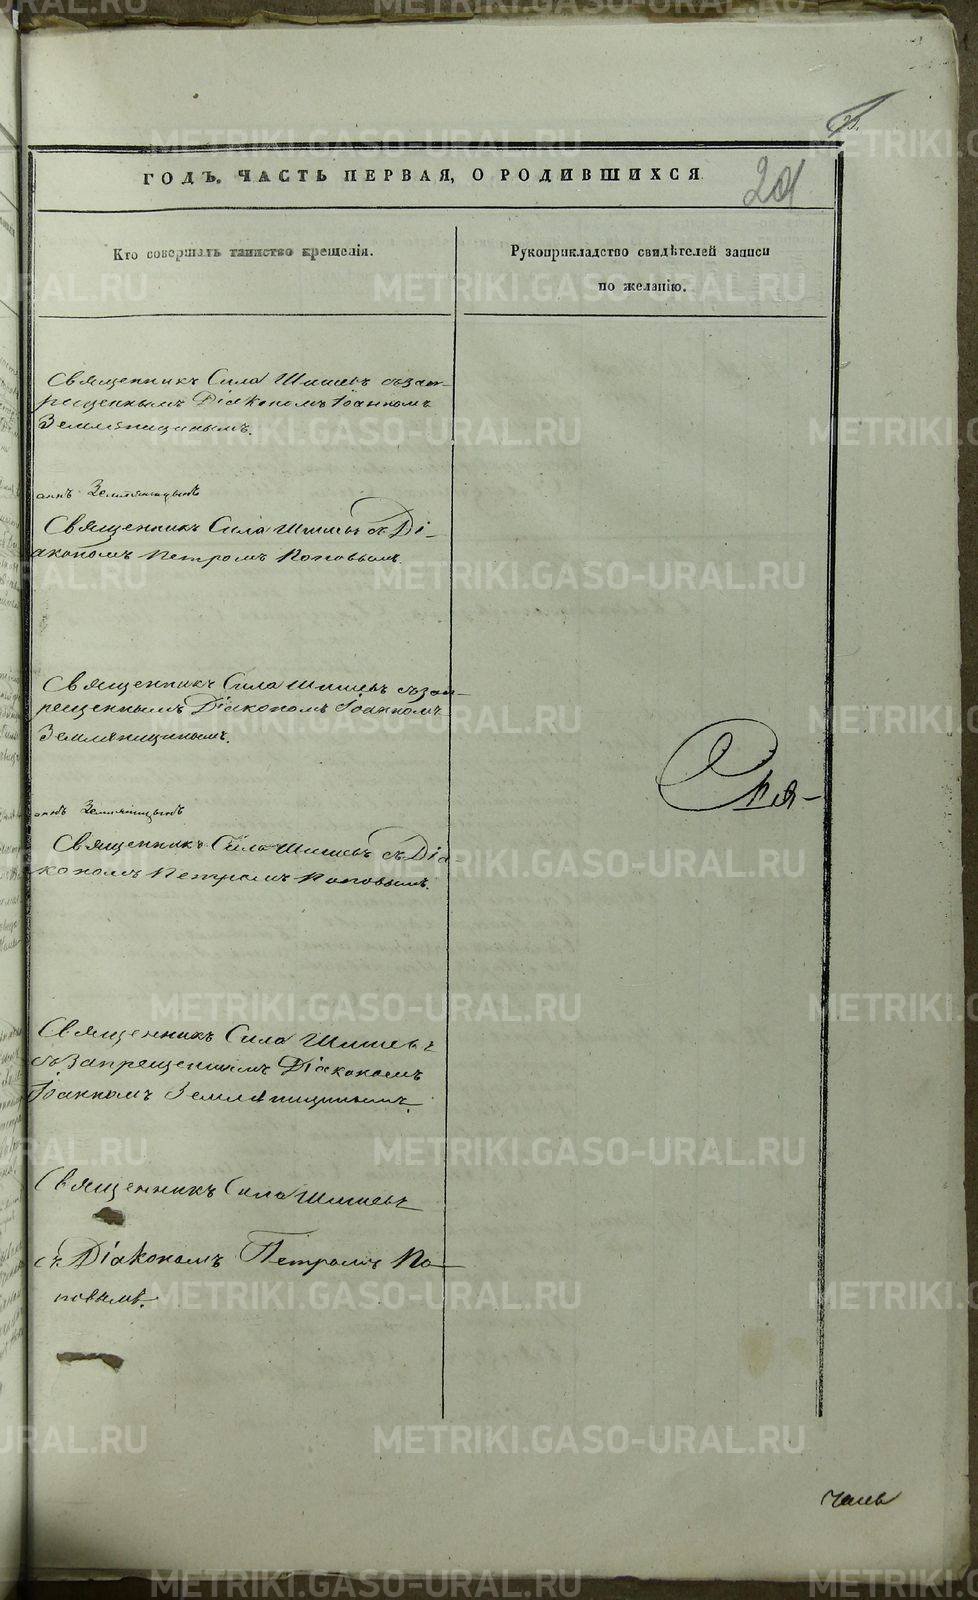 ГОДЪ. ЧАСТЬ ПЕРВАЯ, О РОДИВШИХСЯ
201
Кто совершалъ таинство крещенія.
Рукоприкладство свидѣтелей записи
по желанію.
Священникъ Сила Шишевъ съ зап-
рещеннымъ Діакономъ Іоанномъ
Земляницинымъ.
аннъ Земляницынъ
Священникъ Сила Шишевъ съ Ді-
акономъ Петромъ Поповымъ.
Священникъ Сила Шишевъ съ зап-
рещеннымъ Діакономъ Іоанномъ
Земляницинымъ.
аннъ Земляницынъ
Священникъ Сила Шишевъ съ Діа
кономъ Петромъ Поповымъ.
Священникъ Сила Шишевъ
съ Запрещеннымъ Діакономъ
Іоанномъ Земляницинымъ.
Священникъ Сила Шишевъ
съ Діакономъ Петромъ По-
повымъ.
METRIKI.GASO-URAL.RU